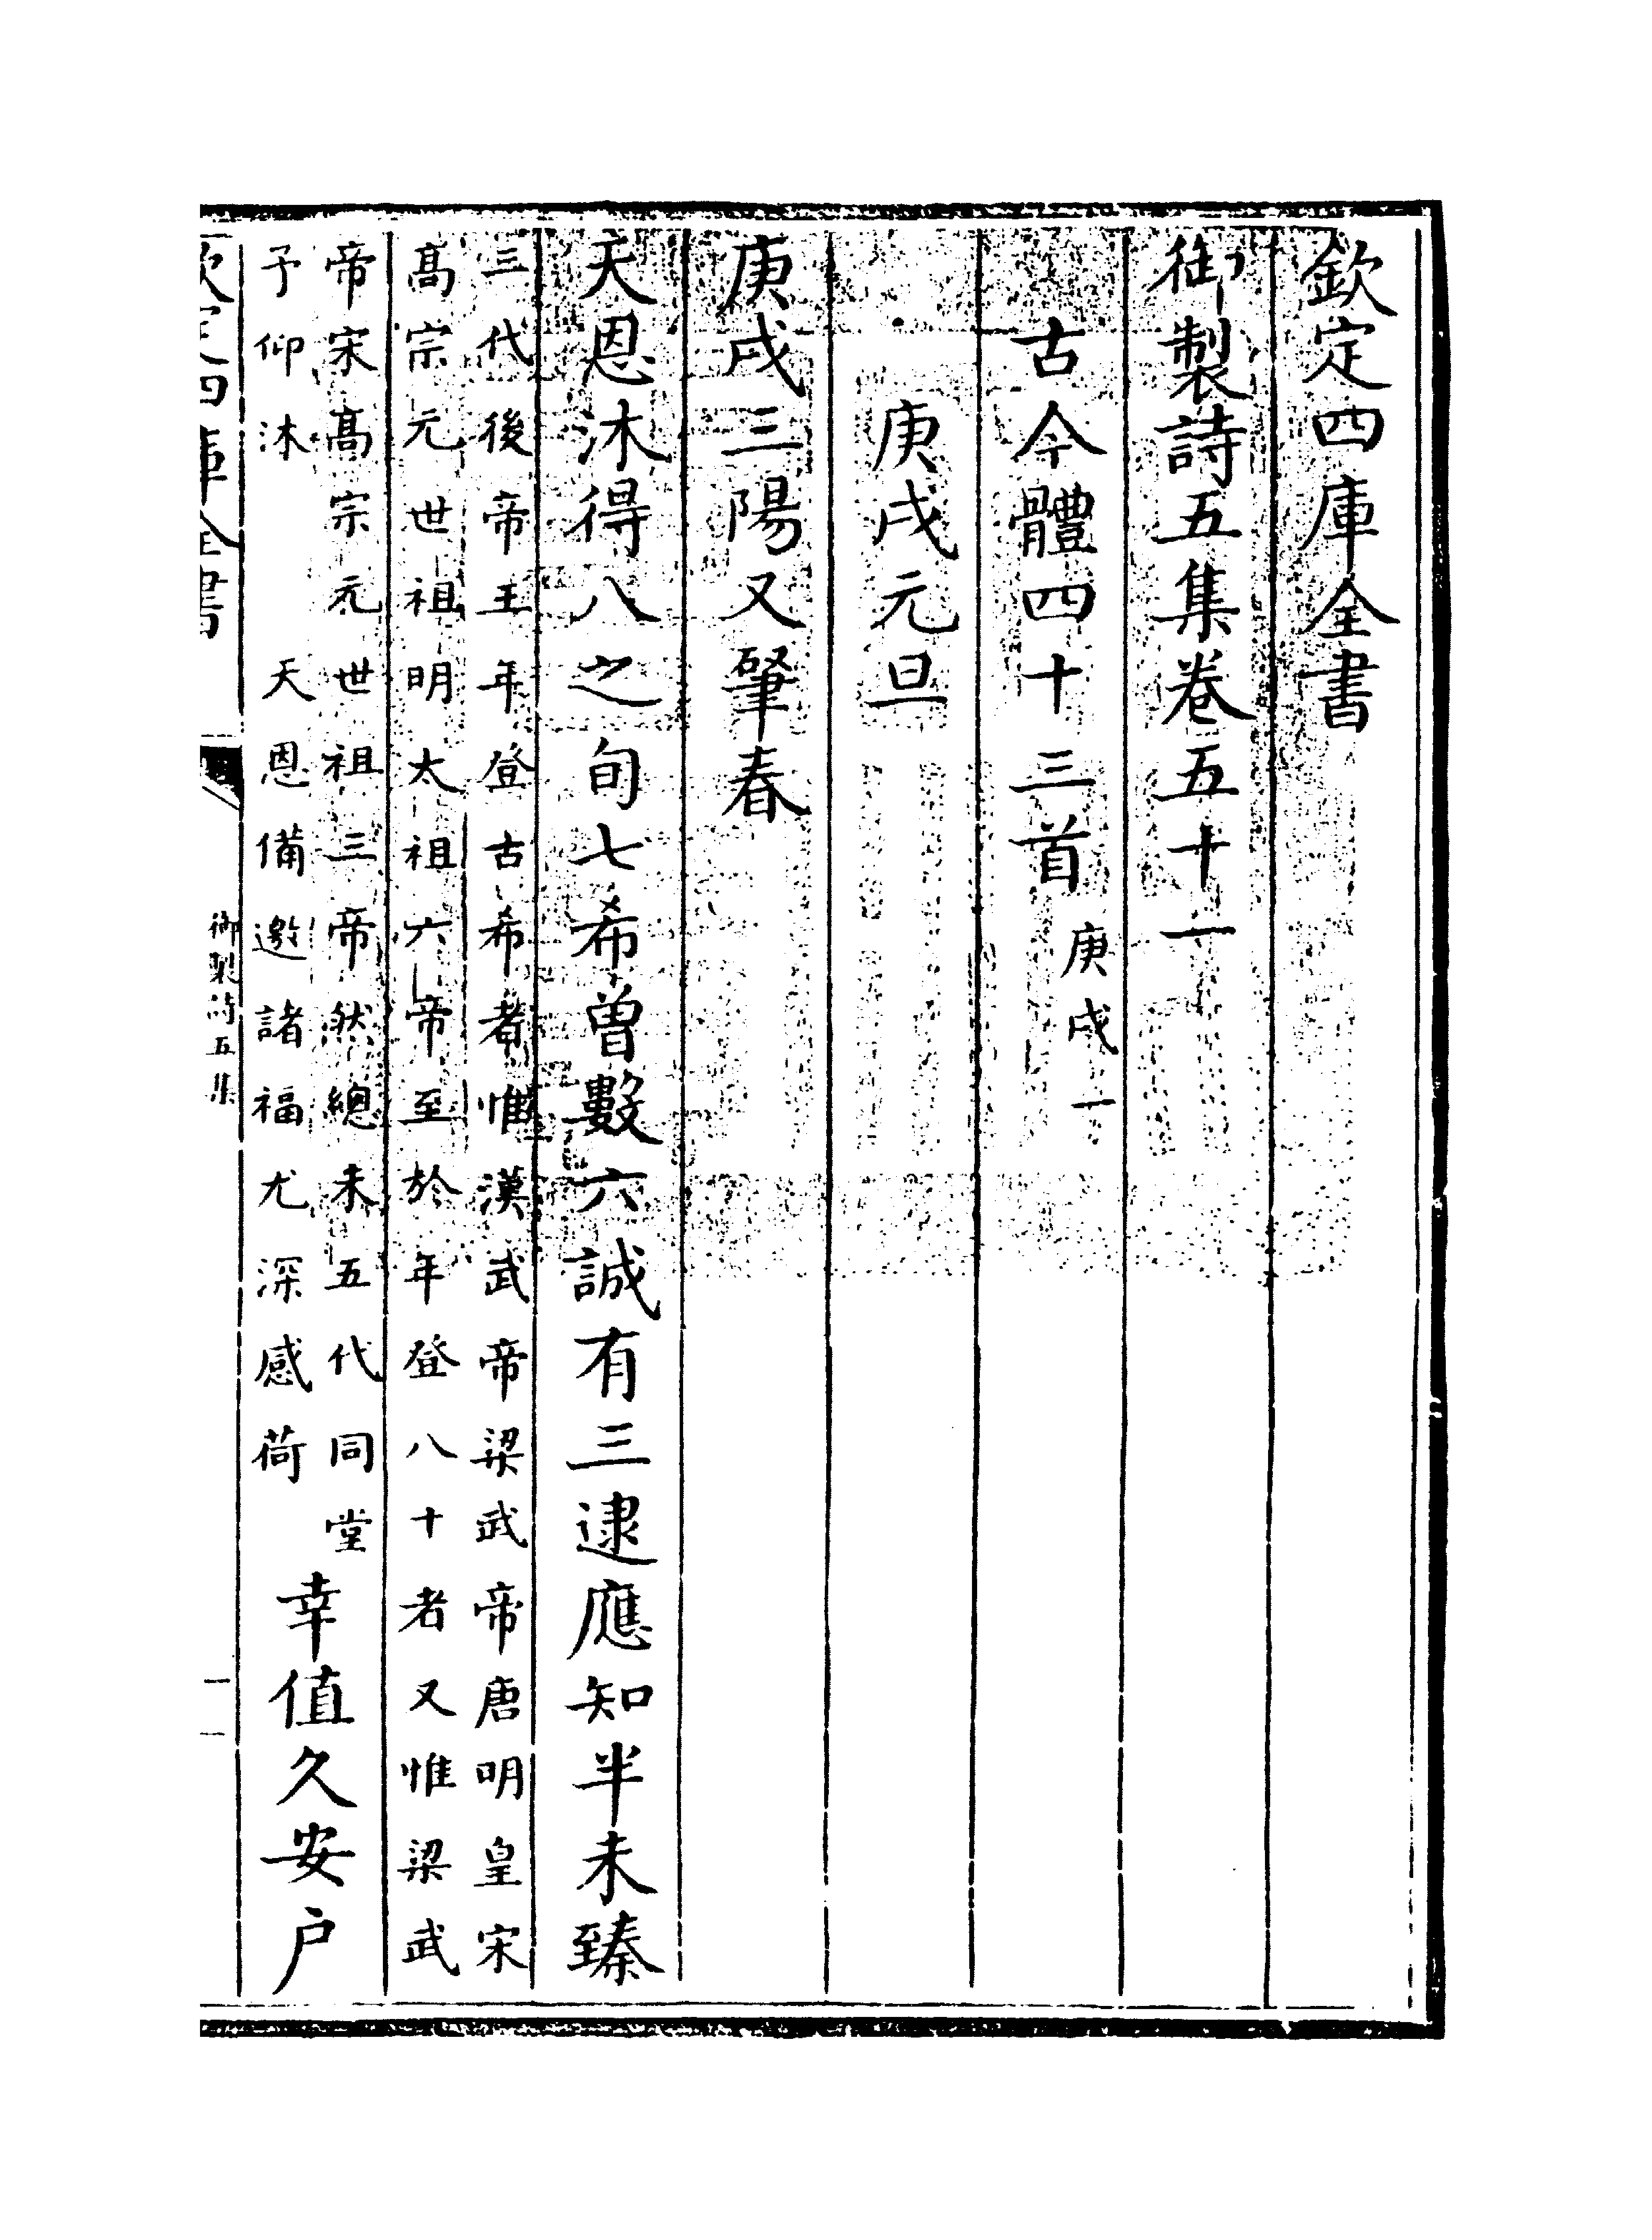 欽定四庫全書
御製詩五集卷五十一
古今體四十三首庚戌一
庚戌元旦
庚戌三陽又肇春
天恩沐得八之旬七希曽數六誠有三逮應知半未臻
三代後帝王年登古希者惟漢武帝梁武帝唐明皇宋
髙宗元世祖明太祖六帝至於年登八十者又惟梁武
帝宋髙宗元世祖三帝然總未五代同堂
予仰沐天恩備邀諸福尤深感荷
幸值久安户
欽定四庫全書
御製詩五集
一